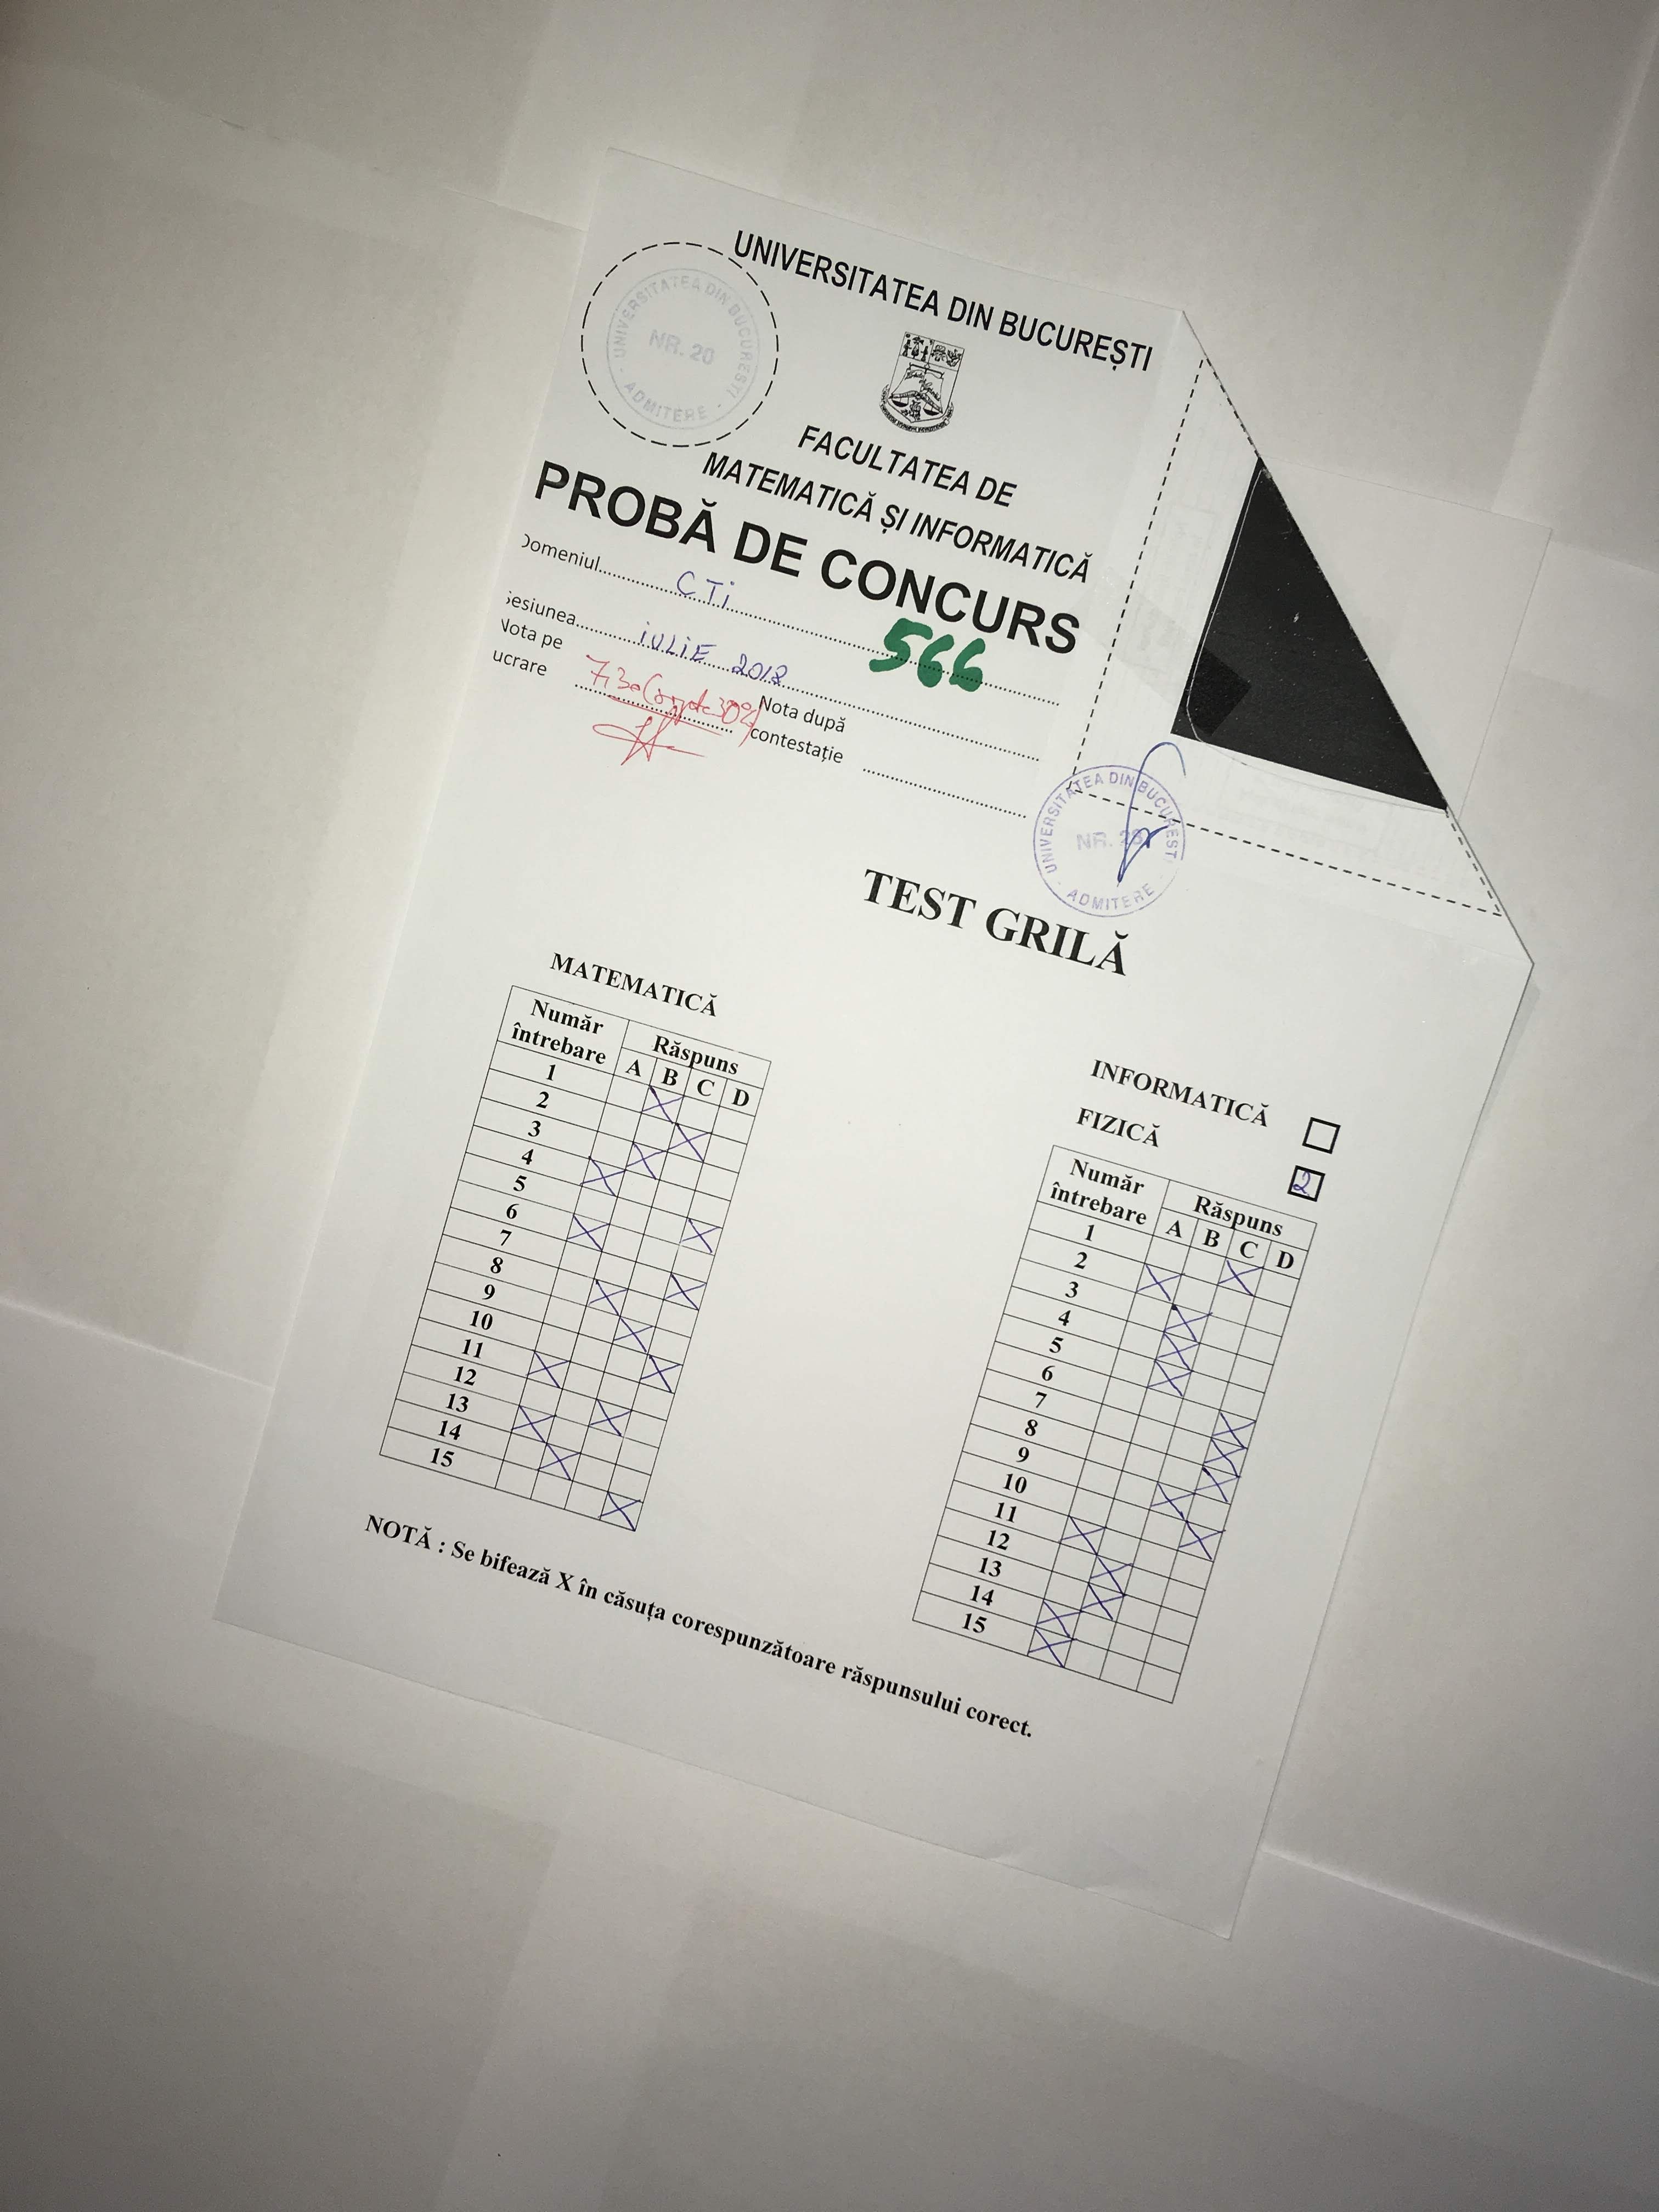 UNIVERSITATEA DIN BUCUREȘTI
UNIVERSITATEA DIN BUCURESTI
NR. 20
ADMITERE
FACULTATEA DE
MATEMATICĂ ȘI INFORMATICĂ
PROBĂ DE CONCURS
Domeniul CTi
566
Sesiunea iULiE 2018
Nota pe
lucrare 7,30
Nota după
contestație
UNIVERSITATEA DIN BUCUREST
NR.
ADMITERE
TEST GRILĂ
MATEMATICĂ
Număr întrebare Răspuns
A B C D
1 X
2 X
3 X
4 X
5 X
6 X
7 X
8 X
9 X
10 X
11 X
12 X
13 X
14 X
15 X
INFORMATICĂ
FIZICĂ 2
Număr întrebare Răspuns
A B C D
1 X
2 X
3 X
4 X
5 X
6 X
7 X
8 X
9 X
10 X
11 X
12 X
13 X
14 X
15 X
NOTĂ : Se bifează X în căsuța corespunzătoare răspunsului corect.